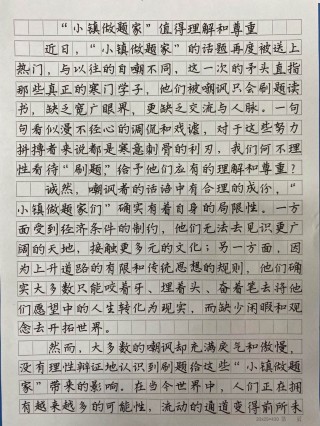 “小镇做题家”值得理解和尊重
近日，“小镇做题家”的话题再度被送上
热门，与以往的自嘲不同，这一次的矛头直指
那些真正的寒门学子，他们被嘲讽只会刷题读
书，缺乏宽广眼界，更缺乏交流与人脉。一句
句看似漫不经心的调侃和戏谑，对于这些努力
拼搏者来说都是寒意刺骨的利刃，我们何不理
性看待“刷题”，给予他们应有的理解和尊重？
诚然，嘲讽者的话语中有合理的成份，“
小镇做题家们”确实有着自身的局限性。一方
面受到经济条件的制约，他们无法去见识更广
阔的天地，接触更多元的文化；另一方面，因
为上升道路的有限和传统思想的规则，他们确
实大多数只能咬着牙、埋着头、奋着笔去将他
们愿望中的人生转化为现实，而缺少闲暇和观
念去开拓世界。
然而，大多数的嘲讽却充满戾气和傲慢，
没有理性辩证地认识到刷题给这些“小镇做题
家”带来的影响。在当今世界中，人们正在拥
有越来越多的可能性，流动的通道变得前所未